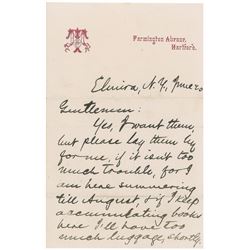 Farmington Avenue,
Hartford.
Elmira, N.Y., June 20
Gentlemen:
Yes, I want them,
but please lay them by
for me, if it isn't too
much trouble, for I
am here summering
till August, & if I keep
accumulating books
here I'll have too
much luggage, shortly.